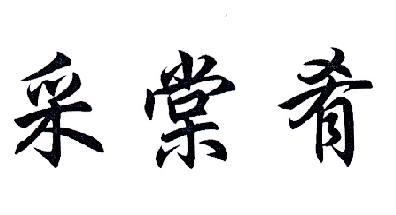 采棠肴